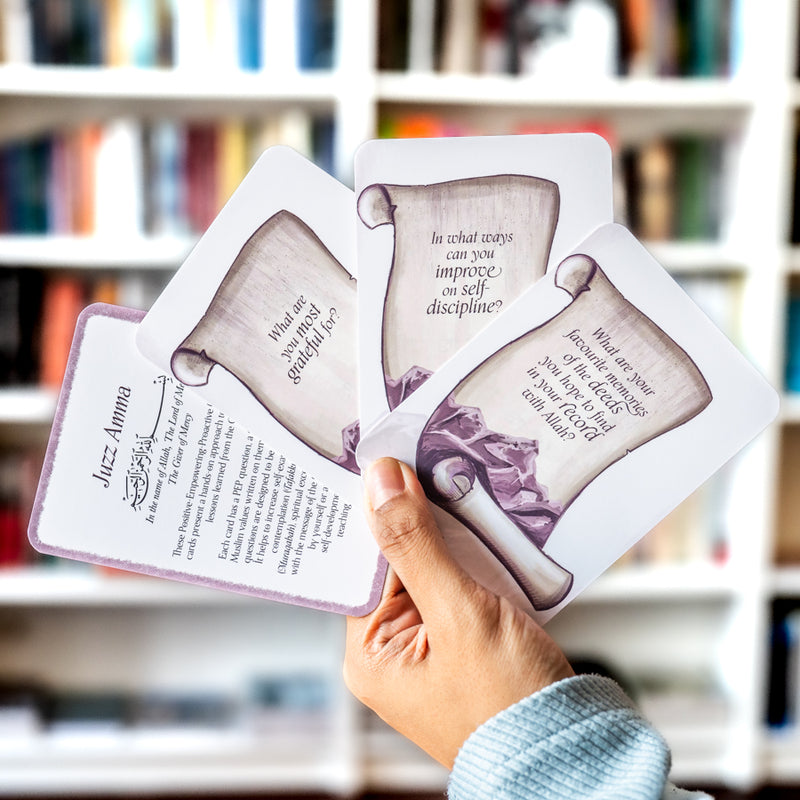 Juzz Amma
بسم الله الرحمن الرحيم
In the name of Allah, The Lord of
The Giver of Mercy
These Positive Empowering Proactive
cards present a hands-on approach to
lessons learned from the
Each card has a PEP question, a
Muslim values written on them
questions are designed to be
It helps to increase self-exa
contemplation (Tafakk
(Muraqabah), spiritual exc
with the message of the
by yourself or a
self developme
teaching
What are
you most
grateful for?
In what ways
can you
improve
on self-
discipline?
What are your
favourite memories
of the deeds
you hope to find
in your record
with Allah?